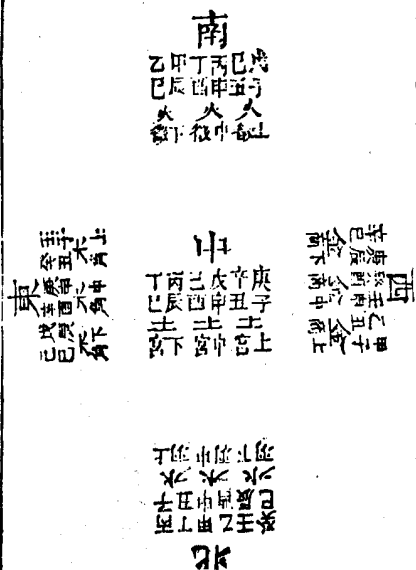 南
乙甲丁丙己戊
巳辰酉申丑子
火火火
徵下徵中徵上
東
己戊辛庚癸壬
巳辰酉申丑子
木木木
角下角中角上
中
丁丙己戊辛庚
巳辰酉申丑子
土土土
宮下宮中宮上
西
辛庚癸壬乙甲
巳辰酉申丑子
金金金
商下商中商上
北
癸壬乙甲丁丙
巳辰酉申丑子
水水水
羽下羽中羽上